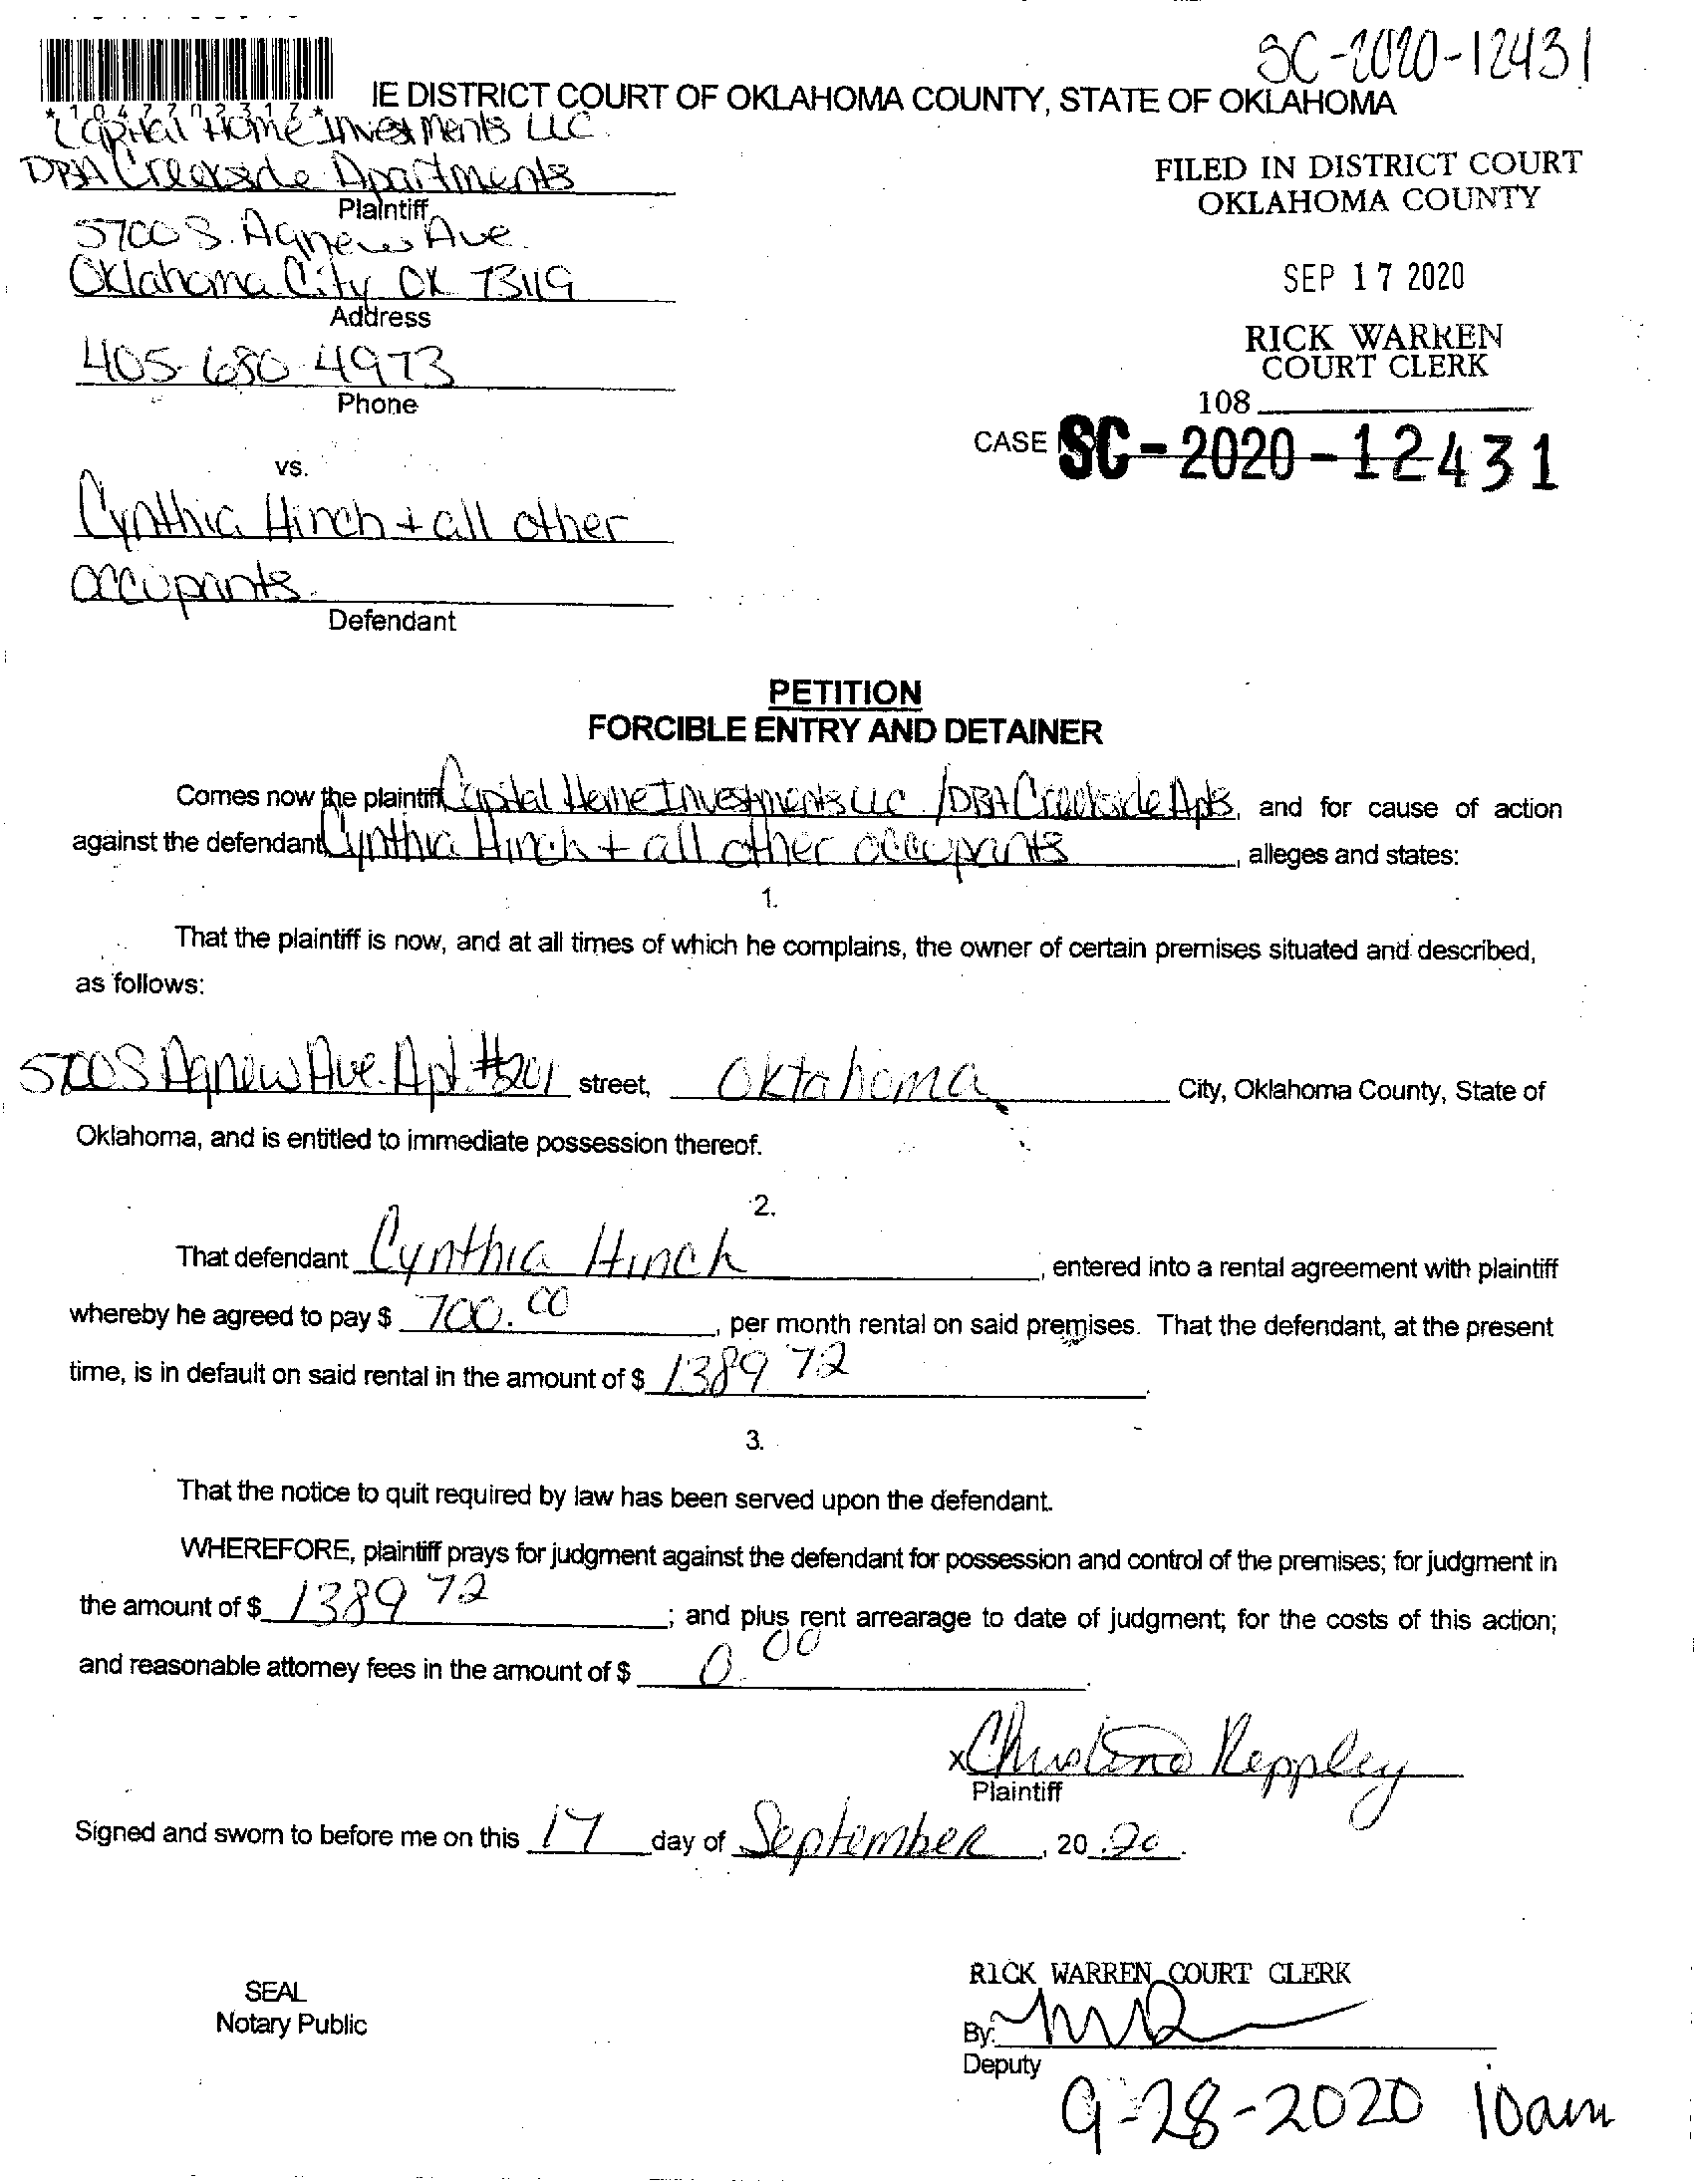 SC-2020-12431
*1047702317*
IE DISTRICT COURT OF OKLAHOMA COUNTY, STATE OF OKLAHOMA
Capital Home Investments LLC.
DBA Creekside Apartments
Plaintiff
5700 S. Agnew Ave.
Oklahoma City OK 73119
Address
405-680-4973
Phone
FILED IN DISTRICT COURT
OKLAHOMA COUNTY
SEP 17 2020
RICK WARREN
COURT CLERK
108
CASE SC-2020-12431
vs.
Cynthia Hinch + all other
occupants.
Defendant
PETITION
FORCIBLE ENTRY AND DETAINER
Comes now the plaintiff Capital Home Investments LLC / DBA Creekside Apts, and for cause of action
against the defendant Cynthia Hinch + all other occupants, alleges and states:
1.
That the plaintiff is now, and at all times of which he complains, the owner of certain premises situated and described,
as follows:
5700 S Agnew Ave. Apt. #201 street, Oklahoma City, Oklahoma County, State of
Oklahoma, and is entitled to immediate possession thereof.
2.
That defendant Cynthia Hinch, entered into a rental agreement with plaintiff
whereby he agreed to pay $ 700.00, per month rental on said premises. That the defendant, at the present
time, is in default on said rental in the amount of $ 1389 72.
3.
That the notice to quit required by law has been served upon the defendant.
WHEREFORE, plaintiff prays for judgment against the defendant for possession and control of the premises; for judgment in
the amount of $ 1389 72; and plus rent arrearage to date of judgment; for the costs of this action;
and reasonable attorney fees in the amount of $ 0.00.
x Christina Reppley
Plaintiff
Signed and sworn to before me on this 17 day of September, 20 20.
SEAL
Notary Public
RICK WARREN COURT CLERK
By:
Deputy
9-28-2020 10am